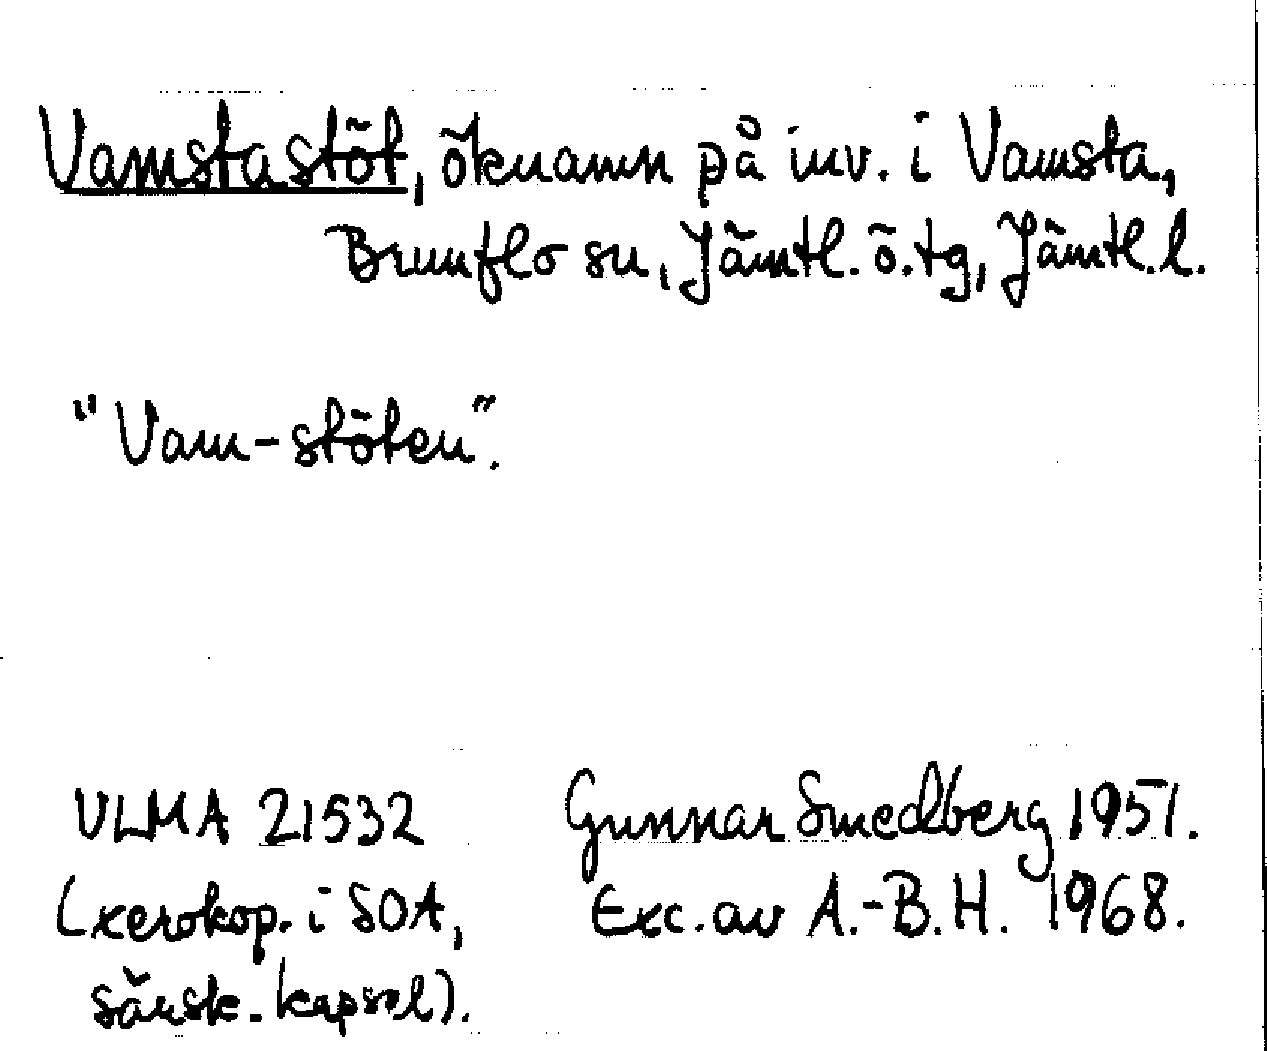 Vamstastöt, öknamn på inv. i Vamsta,
Brunflo sn, Jämtl. ö. tg, Jämtl. l.
"Vam-stöten".
ULMA 21532
(xerokop. i SOA,
särsk. kapsel).
Gunnar Smedberg 1951.
Exc. av A.-B.H. 1968.